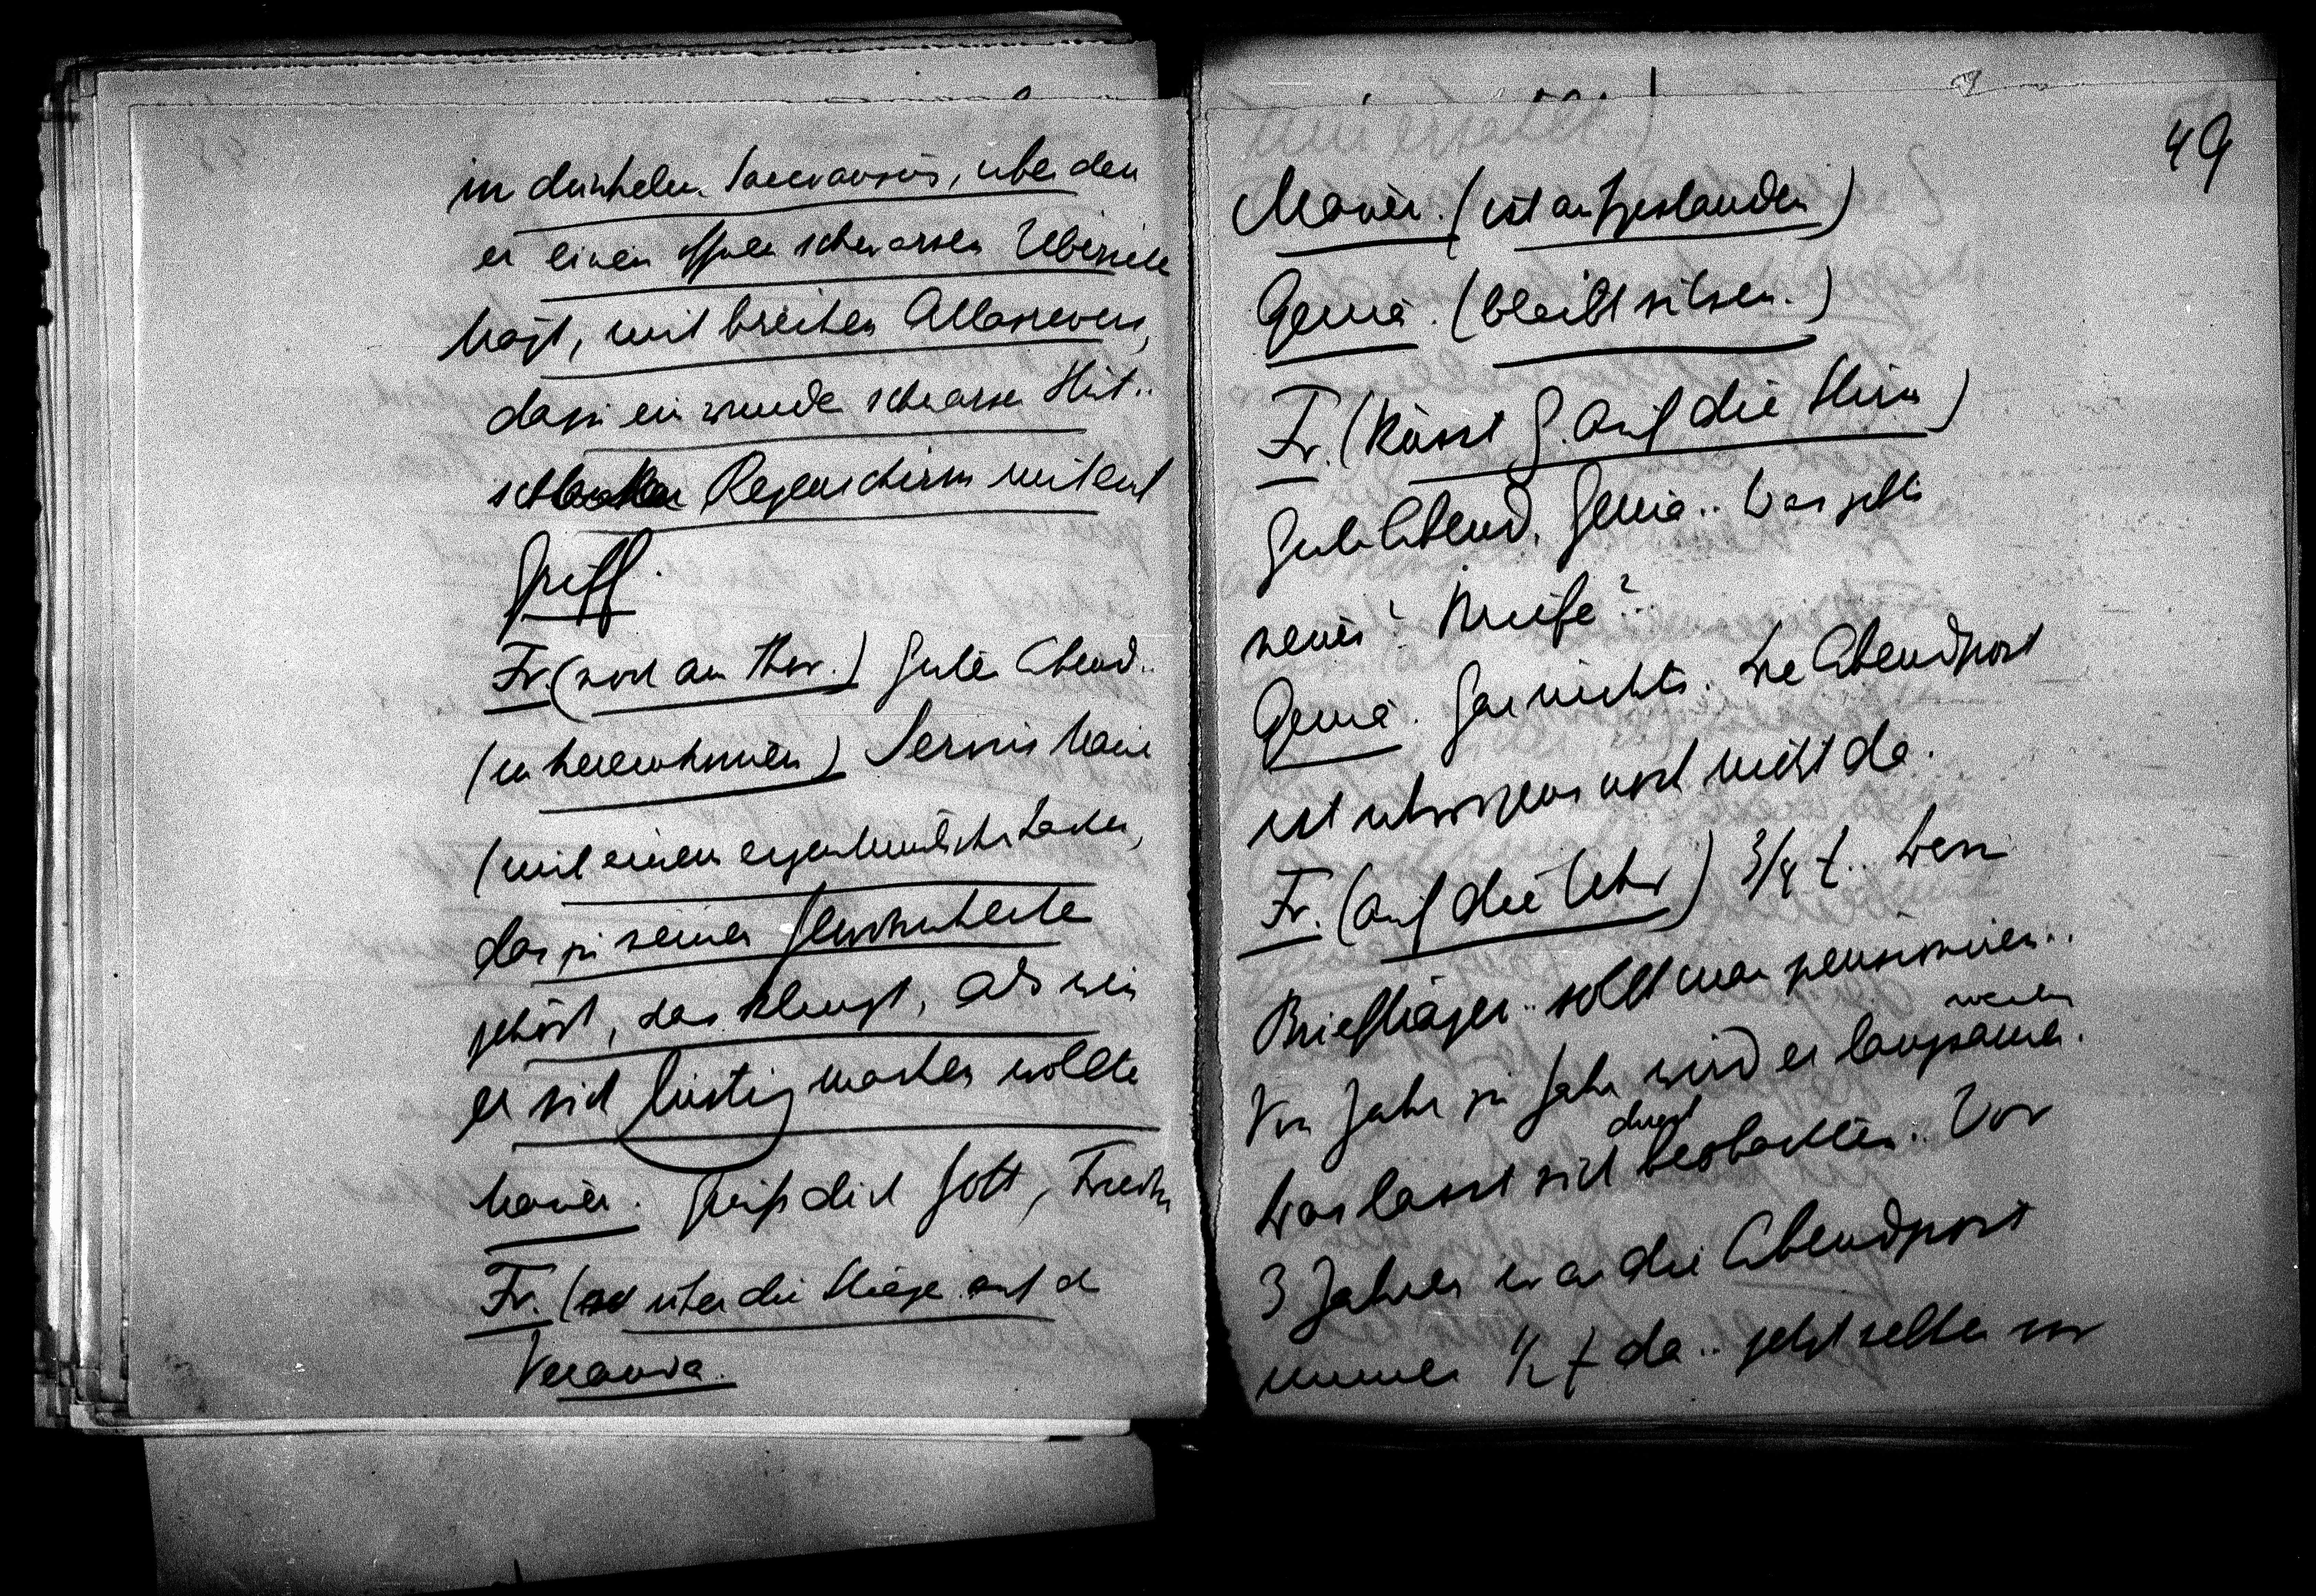 in dunkelm Sacco anzug, über den
er einen offnen schwarzen Überzieher
trägt, mit breiten Atlasrevers,
dazu ein runder schwarzer Hut..
schwarzer Regenschirm mit
Griff.
Fr. (noch am Thor.) Guten Abend..
(hereinkommen) Servus
(mit einem eigenthümlichen Lachen,
das zu seiner Gewohnheit
gehört, das klingt, als wenn
er sich lustig machen wollte
Grüß dich Gott,
Fr. (über die Stiege auf d
Veranda.
49
(ist aufgestanden)
(bleibt sitzen.)
Fr. (küsst G. auf die Stirn)
Guten Abend, .. Was gibts
neues? Briefe?..
Gar nichts. Die Abendpost
ist übrigens noch nicht da.
Fr. (auf die Uhr) 3/4 7.. Den
Briefträger.. sollt man pensioniren..
Von Jahr zu Jahr wird er langsamer.
Das lässt sich direct beobachten.. Vor
3 Jahren war die Abendpost
immer 1/2 7 da.. jetzt selten vor